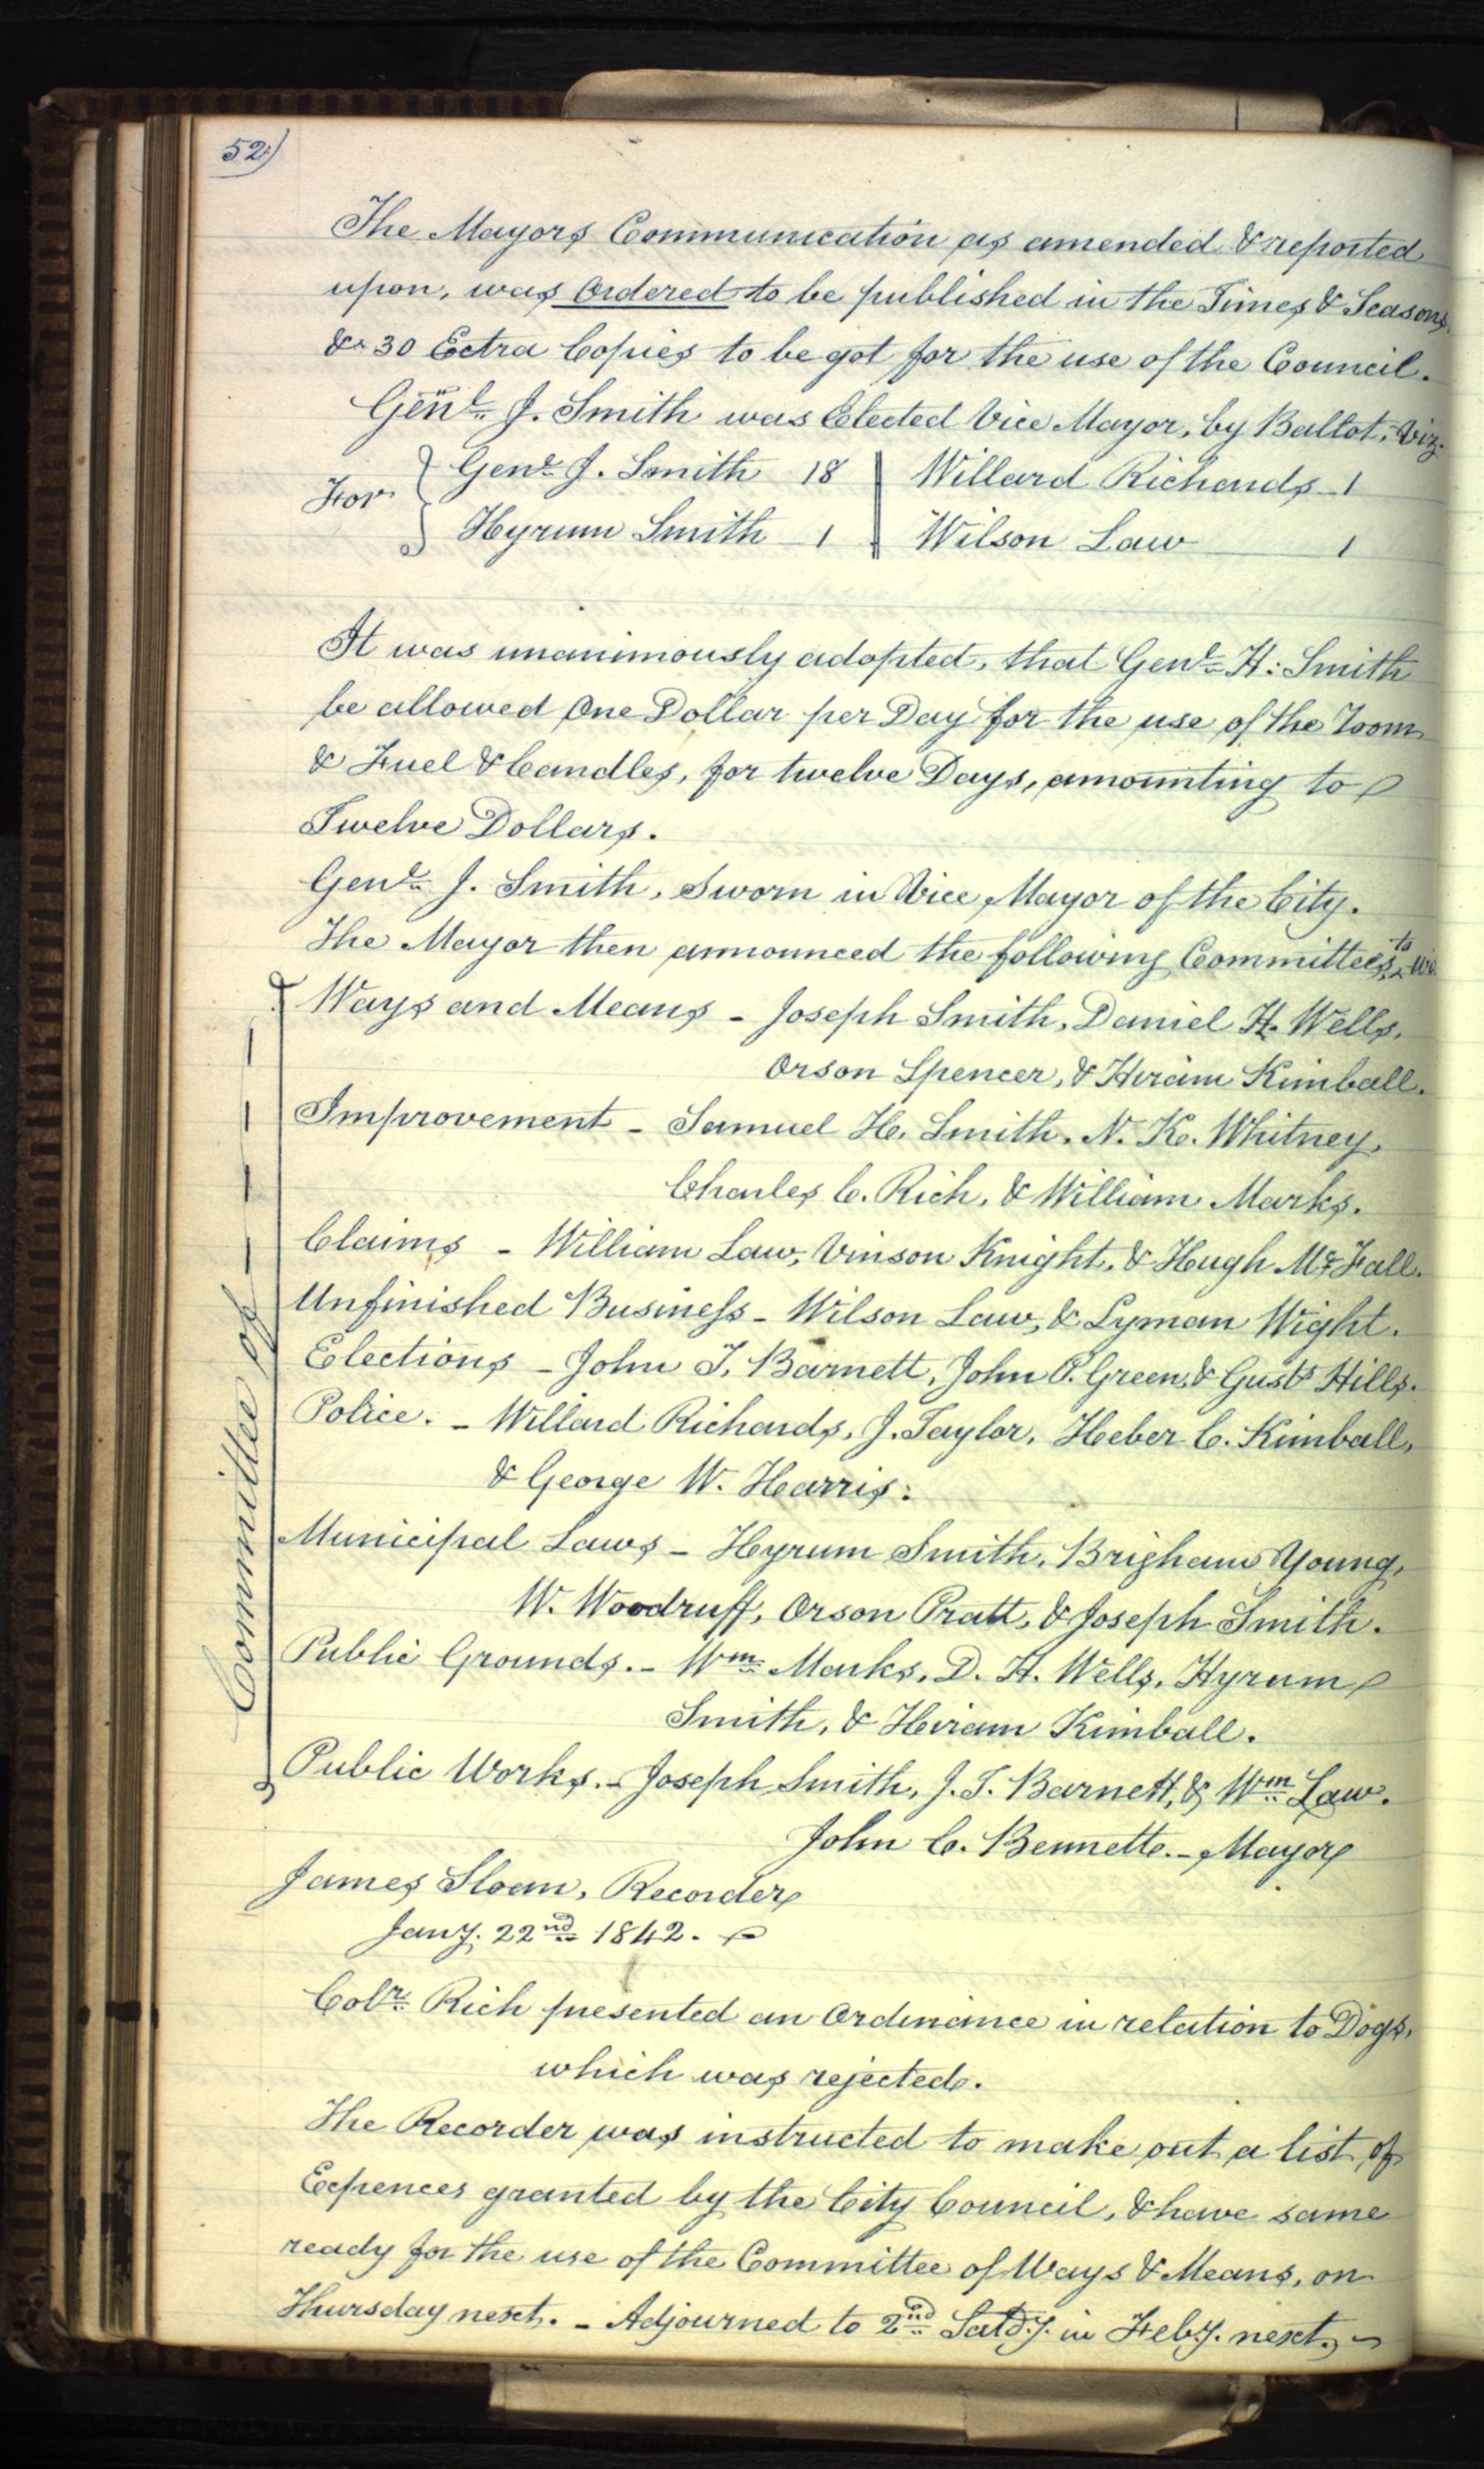 52)
The Mayors Communication as amended & reported
upon, was Ordered to be published in the Times & Seasons,
& 30 Extra Copies to be got for the use of the Council.
Genl. J. Smith was Elected Vice Mayor, by Ballot, Viz.
For { Genl. J. Smith 18 || Willard Richards - 1
Hyrum Smith - 1 || Wilson Law 1
It was unanimously adopted, that Genl. H: Smith
be allowed One Dollar per Day for the use of the Room
& Fuel & Candles, for twelve Days, amounting to
Twelve Dollars.
Genl. J. Smith, Sworn in Vice Mayor of the City.
The Mayor then announced the following Committees, to wit.
Committee of
Ways and Means - Joseph Smith, Daniel H. Wells,
Orson Spencer, & Hiram Kimball.
Improvement - Samuel H. Smith, N. K. Whitney,
Charles C. Rich, & William Marks.
Claims - William Law, Vinson Knight, & Hugh Mc.Fall.
Unfinished Business - Wilson Law, & Lyman Wight.
Elections - John T. Barnett, John P. Green, & Gusts. Hills.
Police. - Willard Richards, J. Taylor, Heber C. Kimball,
& George W. Harris.
Municipal Laws - Hyrum Smith, Brigham Young,
W. Woodruff, Orson Pratt, & Joseph Smith.
Public Grounds. - Wm. Marks, D. H. Wells, Hyrum
Smith, & Hiram Kimball.
Public Works. - Joseph Smith, J. T. Barnett, & Wm. Law.
John C. Bennett. - Mayor
James Sloan, Recorder
Jany. 22nd. 1842.
Colr. Rich presented an Ordinance in relation to Dogs,
which was rejected.
The Recorder was instructed to make out a list of
Expences granted by the City Council, & have same
ready for the use of the Committee of Ways & Means, on
Thursday next. - Adjourned to 2nd. Satdy. in Feby. next.